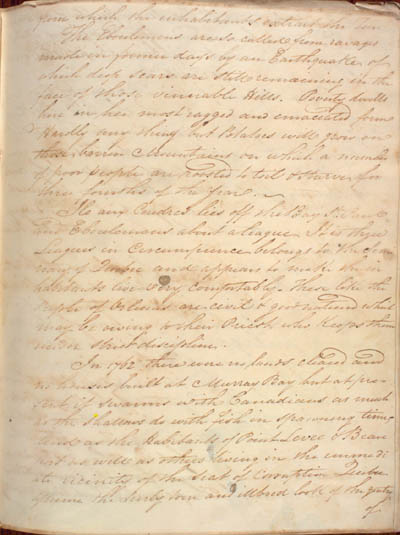 from which the inhabitants extract the Tar.
The Eboulemens are so called from ravages
made in former days by an Earthquake of
which deep scars are still remaining in the
face of those venerable Hills. Poverty dwells
here in her most ragged and emaciated form
Hardly any thing but Potatoes will grow on
these barren Mountains on which a number
of poor people are to toil & starve for
three fourths of the Year.
Isle aux Coudres lies off the Bay St. Paul
and Eboulemens about a league. It is three
Leagues in Circumference belongs to the Semi
nary of Quebec and appears to make the in
habitants live very comfortably. These like the
people of Orleans are civil & good natured which
may be owing to their Priest who keeps them
under strict discipline.
In 1762 there were no lands cleared and
no houses built at Murray Bay but at pre
sent it swarms with Canadians as much
as the Shallows do with fish in spawning time
and as the Habitants of Point Levee & Beau
port as well as others living in the immedi
ate vicinity of the Seat of Corruption Quebec
assume the surly tone and illbred look of the gentry
of